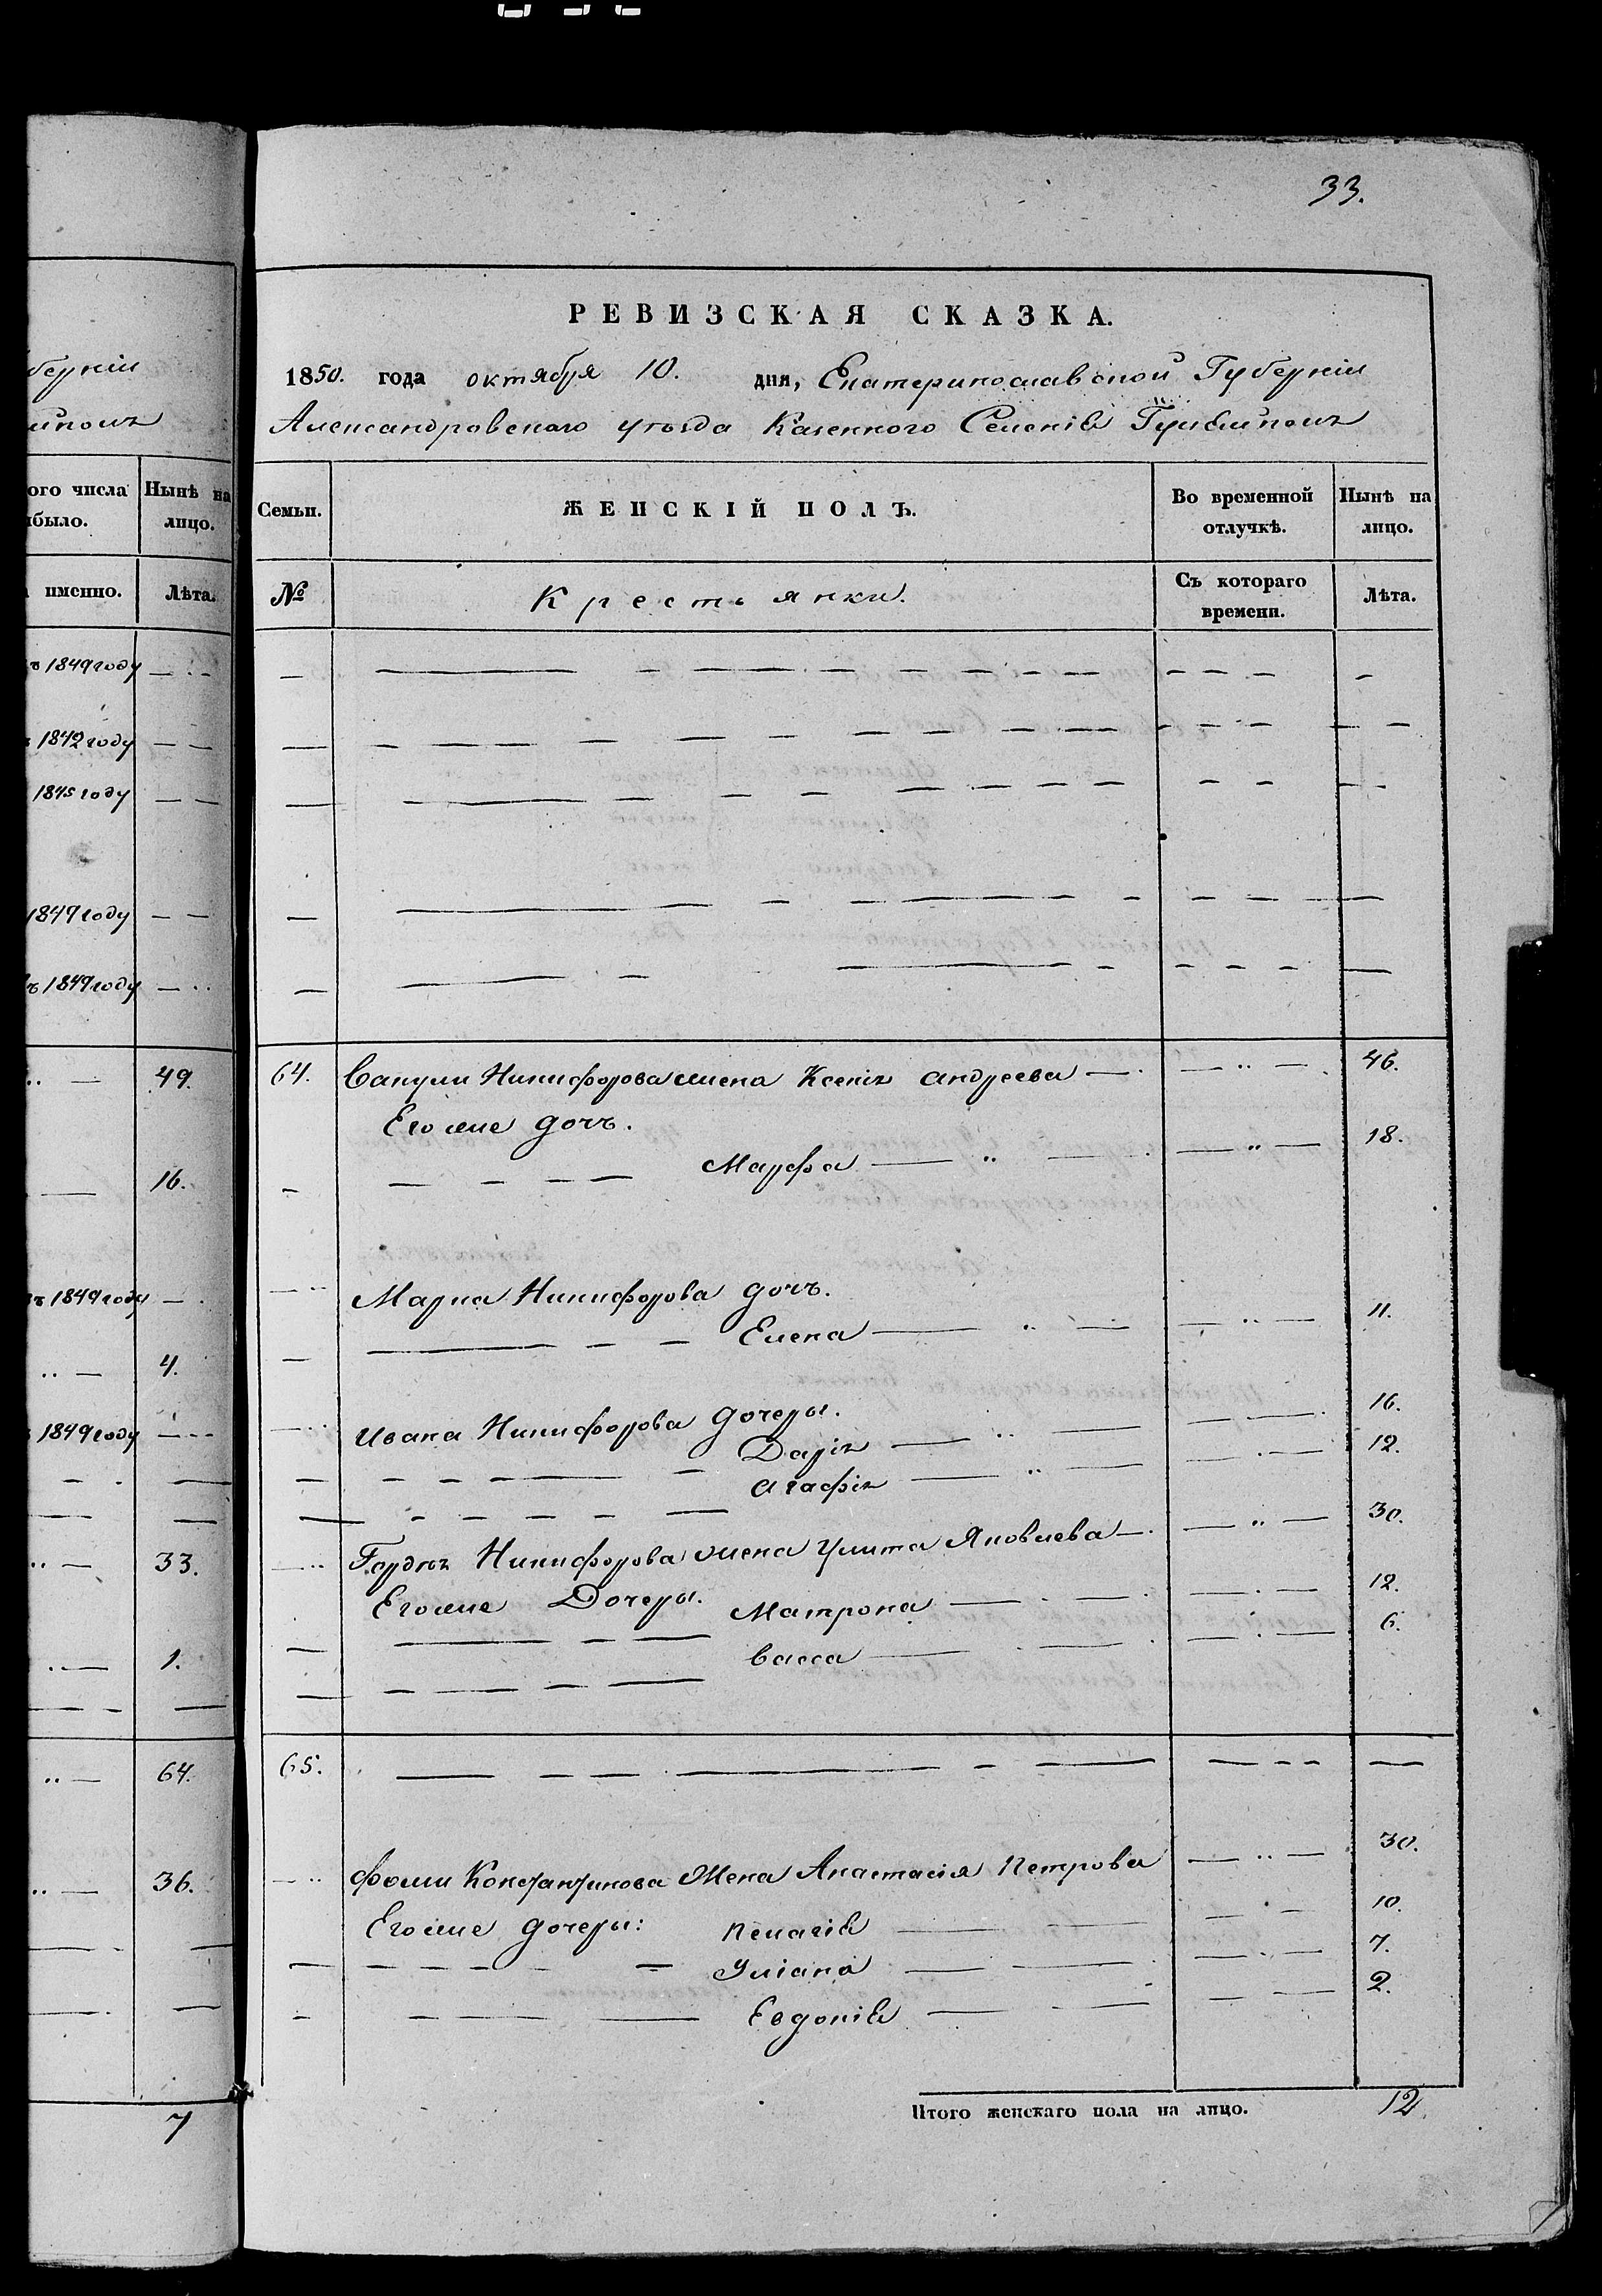 33.
берніи
ого числа Нынѣ на
было. лицо.
именно. Лѣта.
ъ 1849 году
1842 году
1845 году
1849 году
ъ 1849 году
49.
16.
ъ 1849 году
4.
1849 году
33.
1.
64.
36.
7
РЕВИЗСКАЯ СКАЗКА.
1850. года октября 10. дня, Екатеринославской Губерніи
Александровскаго уѣзда Казенного Селенія
Семьи. ЖЕНСКІЙ ПОЛЪ. Во временной отлучкѣ. Нынѣ на лицо.
№ Крестьянки. Съ котораго времени. Лѣта.
64. Вакули Никифорова жена Ксенія Андреева 46.
Его же дочь.
Марфа 18.
Марка Никифорова дочь.
Елена 11.
Ивана Никифорова дочеры.
Дарія 16.
Агафія 12.
Гордѣя Никифорова жена Улита Яковлева 30.
Его же Дочеры. Матрона 12.
Васса 6.
65.
Фоми Константинова Жена Анастасія Петрова 30.
Его же дочеры: Пелагія 10.
Уліана 7.
Евдокія 2.
Итого женскаго пола на лицо. 12.